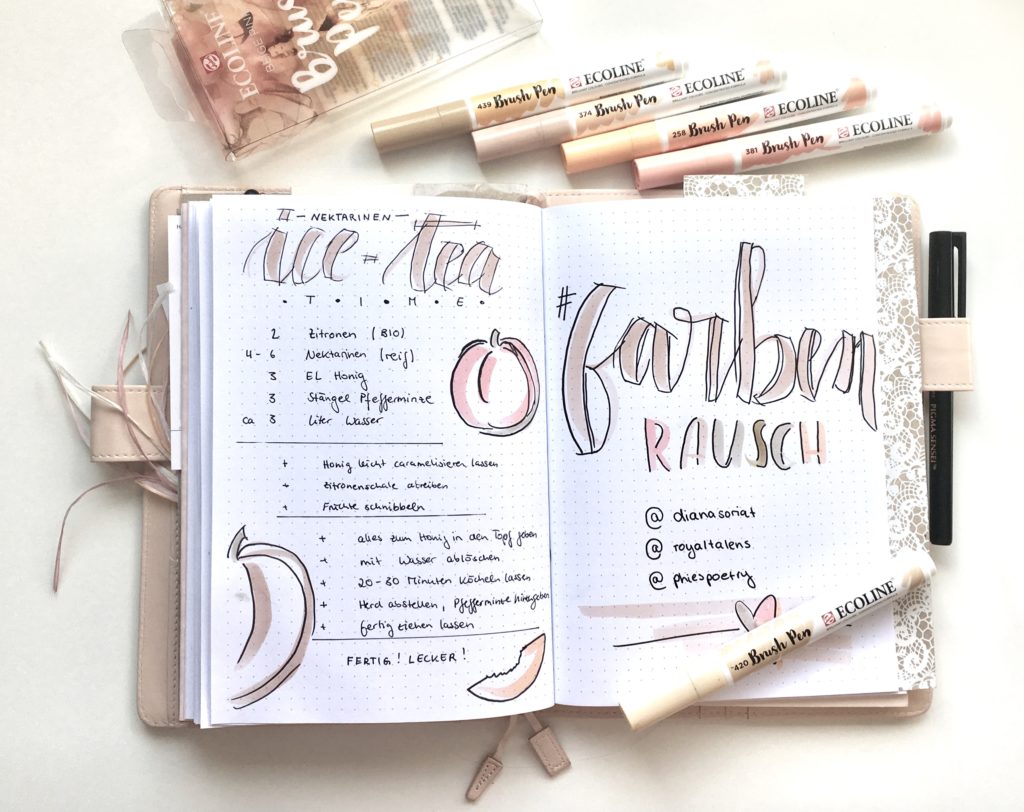 ECOLINE
BEIGE PINK
Brush
pe
439 Brush Pen ECOLINE
374 Brush Pen ECOLINE
258 Brush Pen ECOLINE
381 Brush Pen ECOLINE
— NEKTARINEN —
ice = Tea
• T • I • M • E •
2 Zitronen (BIO)
4 - 6 Nektarinen (reif)
3 EL Honig
3 Stängel Pfefferminze
ca 3 Liter Wasser
+ Honig leicht caramelisieren lassen
+ Zitronenschale abreiben
+ Früchte schnibbeln
+ alles zum Honig in den Topf geben
+ mit Wasser ablöschen
+ 20-30 Minuten köcheln lassen
+ Herd abstellen, Pfefferminze hineingeben
+ fertig ziehen lassen
FERTIG! LECKER!
#farben
RAUSCH
@ dianasoriat
@ royaltalens
@ phiespoetry
420 Brush Pen ECOLINE
PIGMA SENSEI™